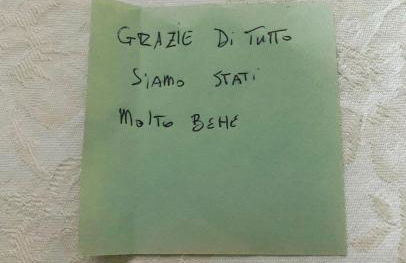 GRAZIE Di TUTTO
SiAMO STATi
MOlTO BENE